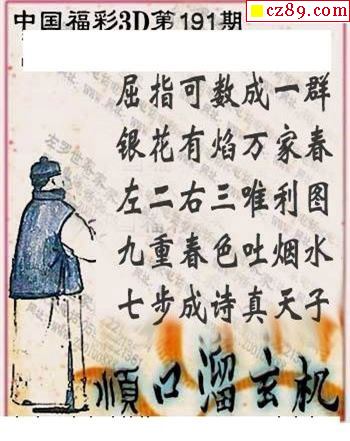 cz89.com
中国福彩3D第191期
屈指可数成一群
银花有焰万家春
左二右三唯利图
九重春色吐烟水
七步成诗真天子
順口溜玄机